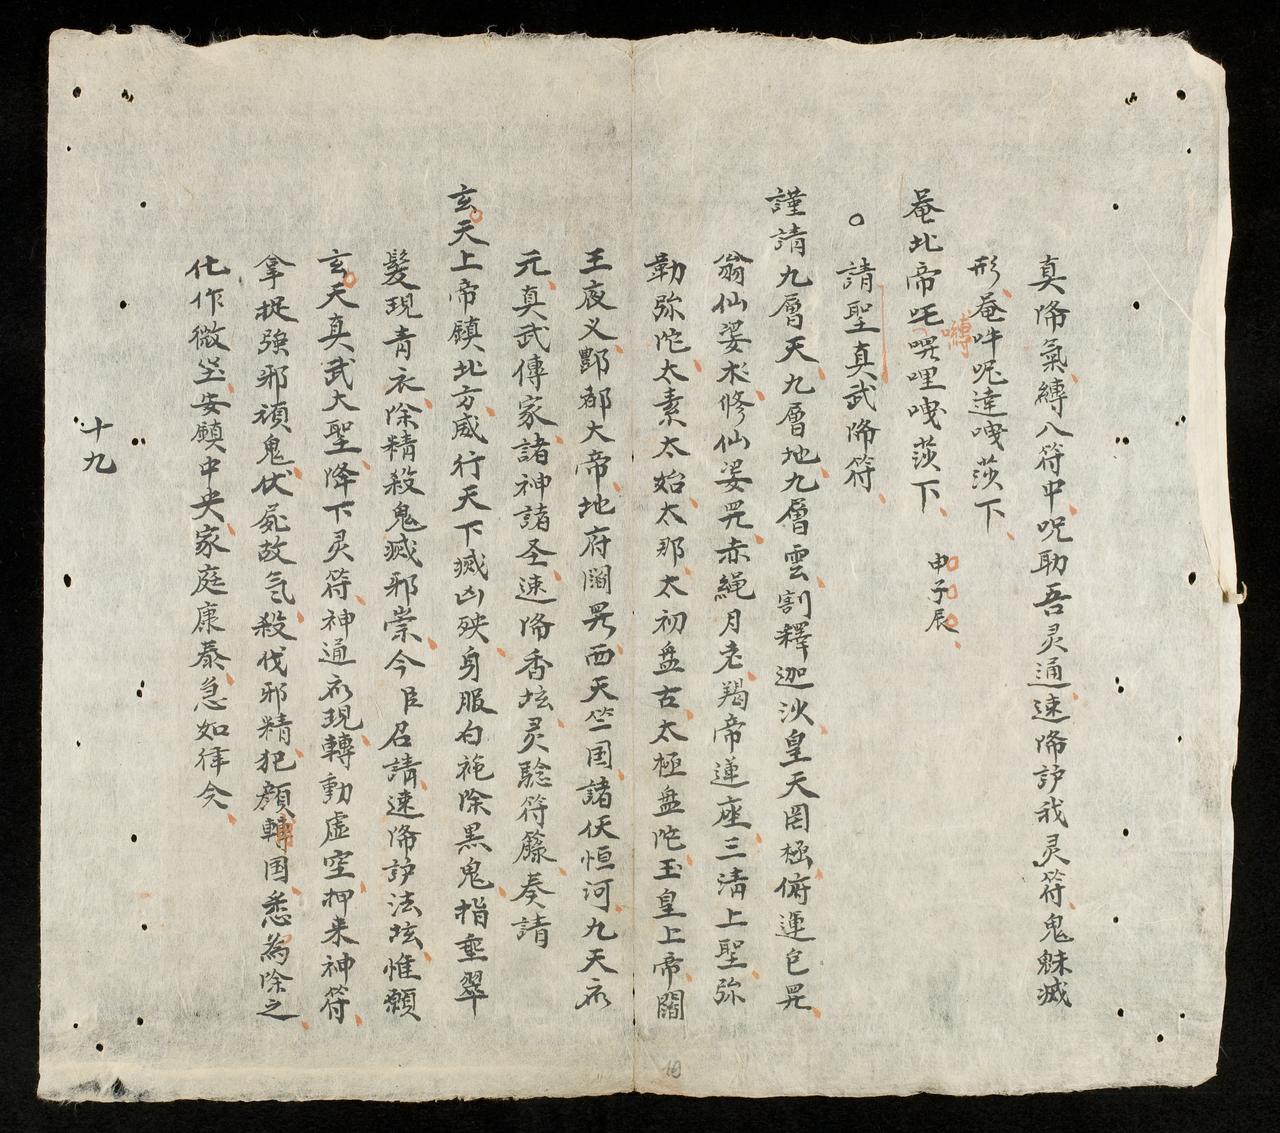 真降氣縛八符中呪助吾灵通速降訲我灵符鬼魅滅
形菴吽呢達㗚莎下
菴北帝吒㗚哩㗚莎下 申子辰
嚩
請聖真武降符
謹請九層天九層地九層雲割釋迦沙皇天罡極俯運包罡
翁仙娑水修仙娑罡赤繩月老羯帝蓮座三清上聖弥
勒弥陀太素太始太那太初盘古太極盘陀玉皇上帝閻
王夜义酆都大帝地府閻罗西天竺国諸仸恒河九天
元真武傳家諸神諸圣速降香坛灵騐符籙奏請
玄天上帝鎮北方威行天下滅凶殃身服白袍除黑鬼指垂翠
髮現青衣除精殺鬼滅邪祟今臣召請速降訲法坛惟願
玄天真武大聖降下灵符神通 現轉動虚空押来神符
拿捉强邪頑鬼伏屍故氣殺伐邪精犯顔轉国悉為除之
化作微尘安鎮中央家庭康泰急如律令
十九